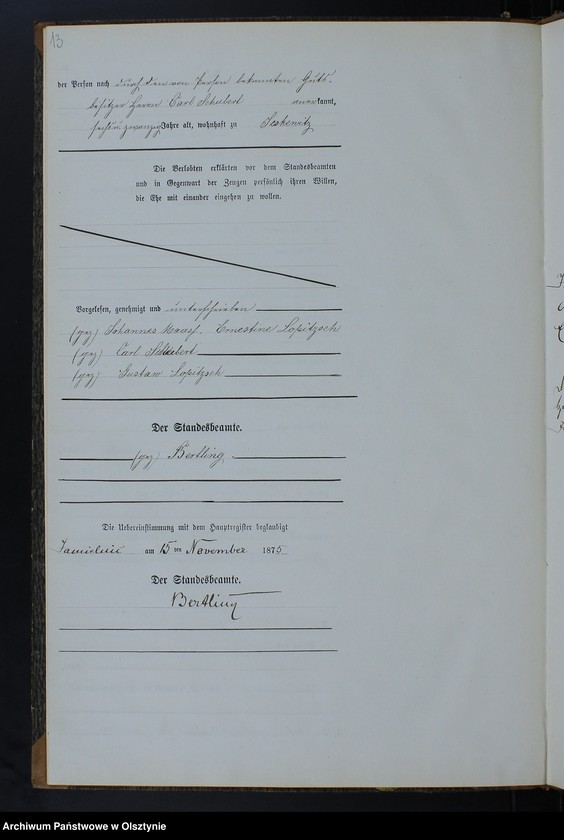 13
der Person nach durch den von Person bekannten Guts-
besitzer Herrn Carl Schubert anerkannt,
sechsundzwanzig Jahre alt, wohnhaft zu
Die Verlobten erklärten vor dem Standesbeamten
und in Gegenwart der Zeugen persönlich ihren Willen,
die Ehe mit einander eingehen zu wollen.
Vorgelesen, genehmigt und unterschrieben
(gez) Johannes Maass. Ernestine Lopitzsch
(gez) Carl Schubert
(gez) Gustav Lopitzsch
Der Standesbeamte.
(gez) Bertling
Die Uebereinstimmung mit dem Hauptregister beglaubigt
am 15 ten November 1875
Der Standesbeamte.
Bertling
Archiwum Państwowe w Olsztynie